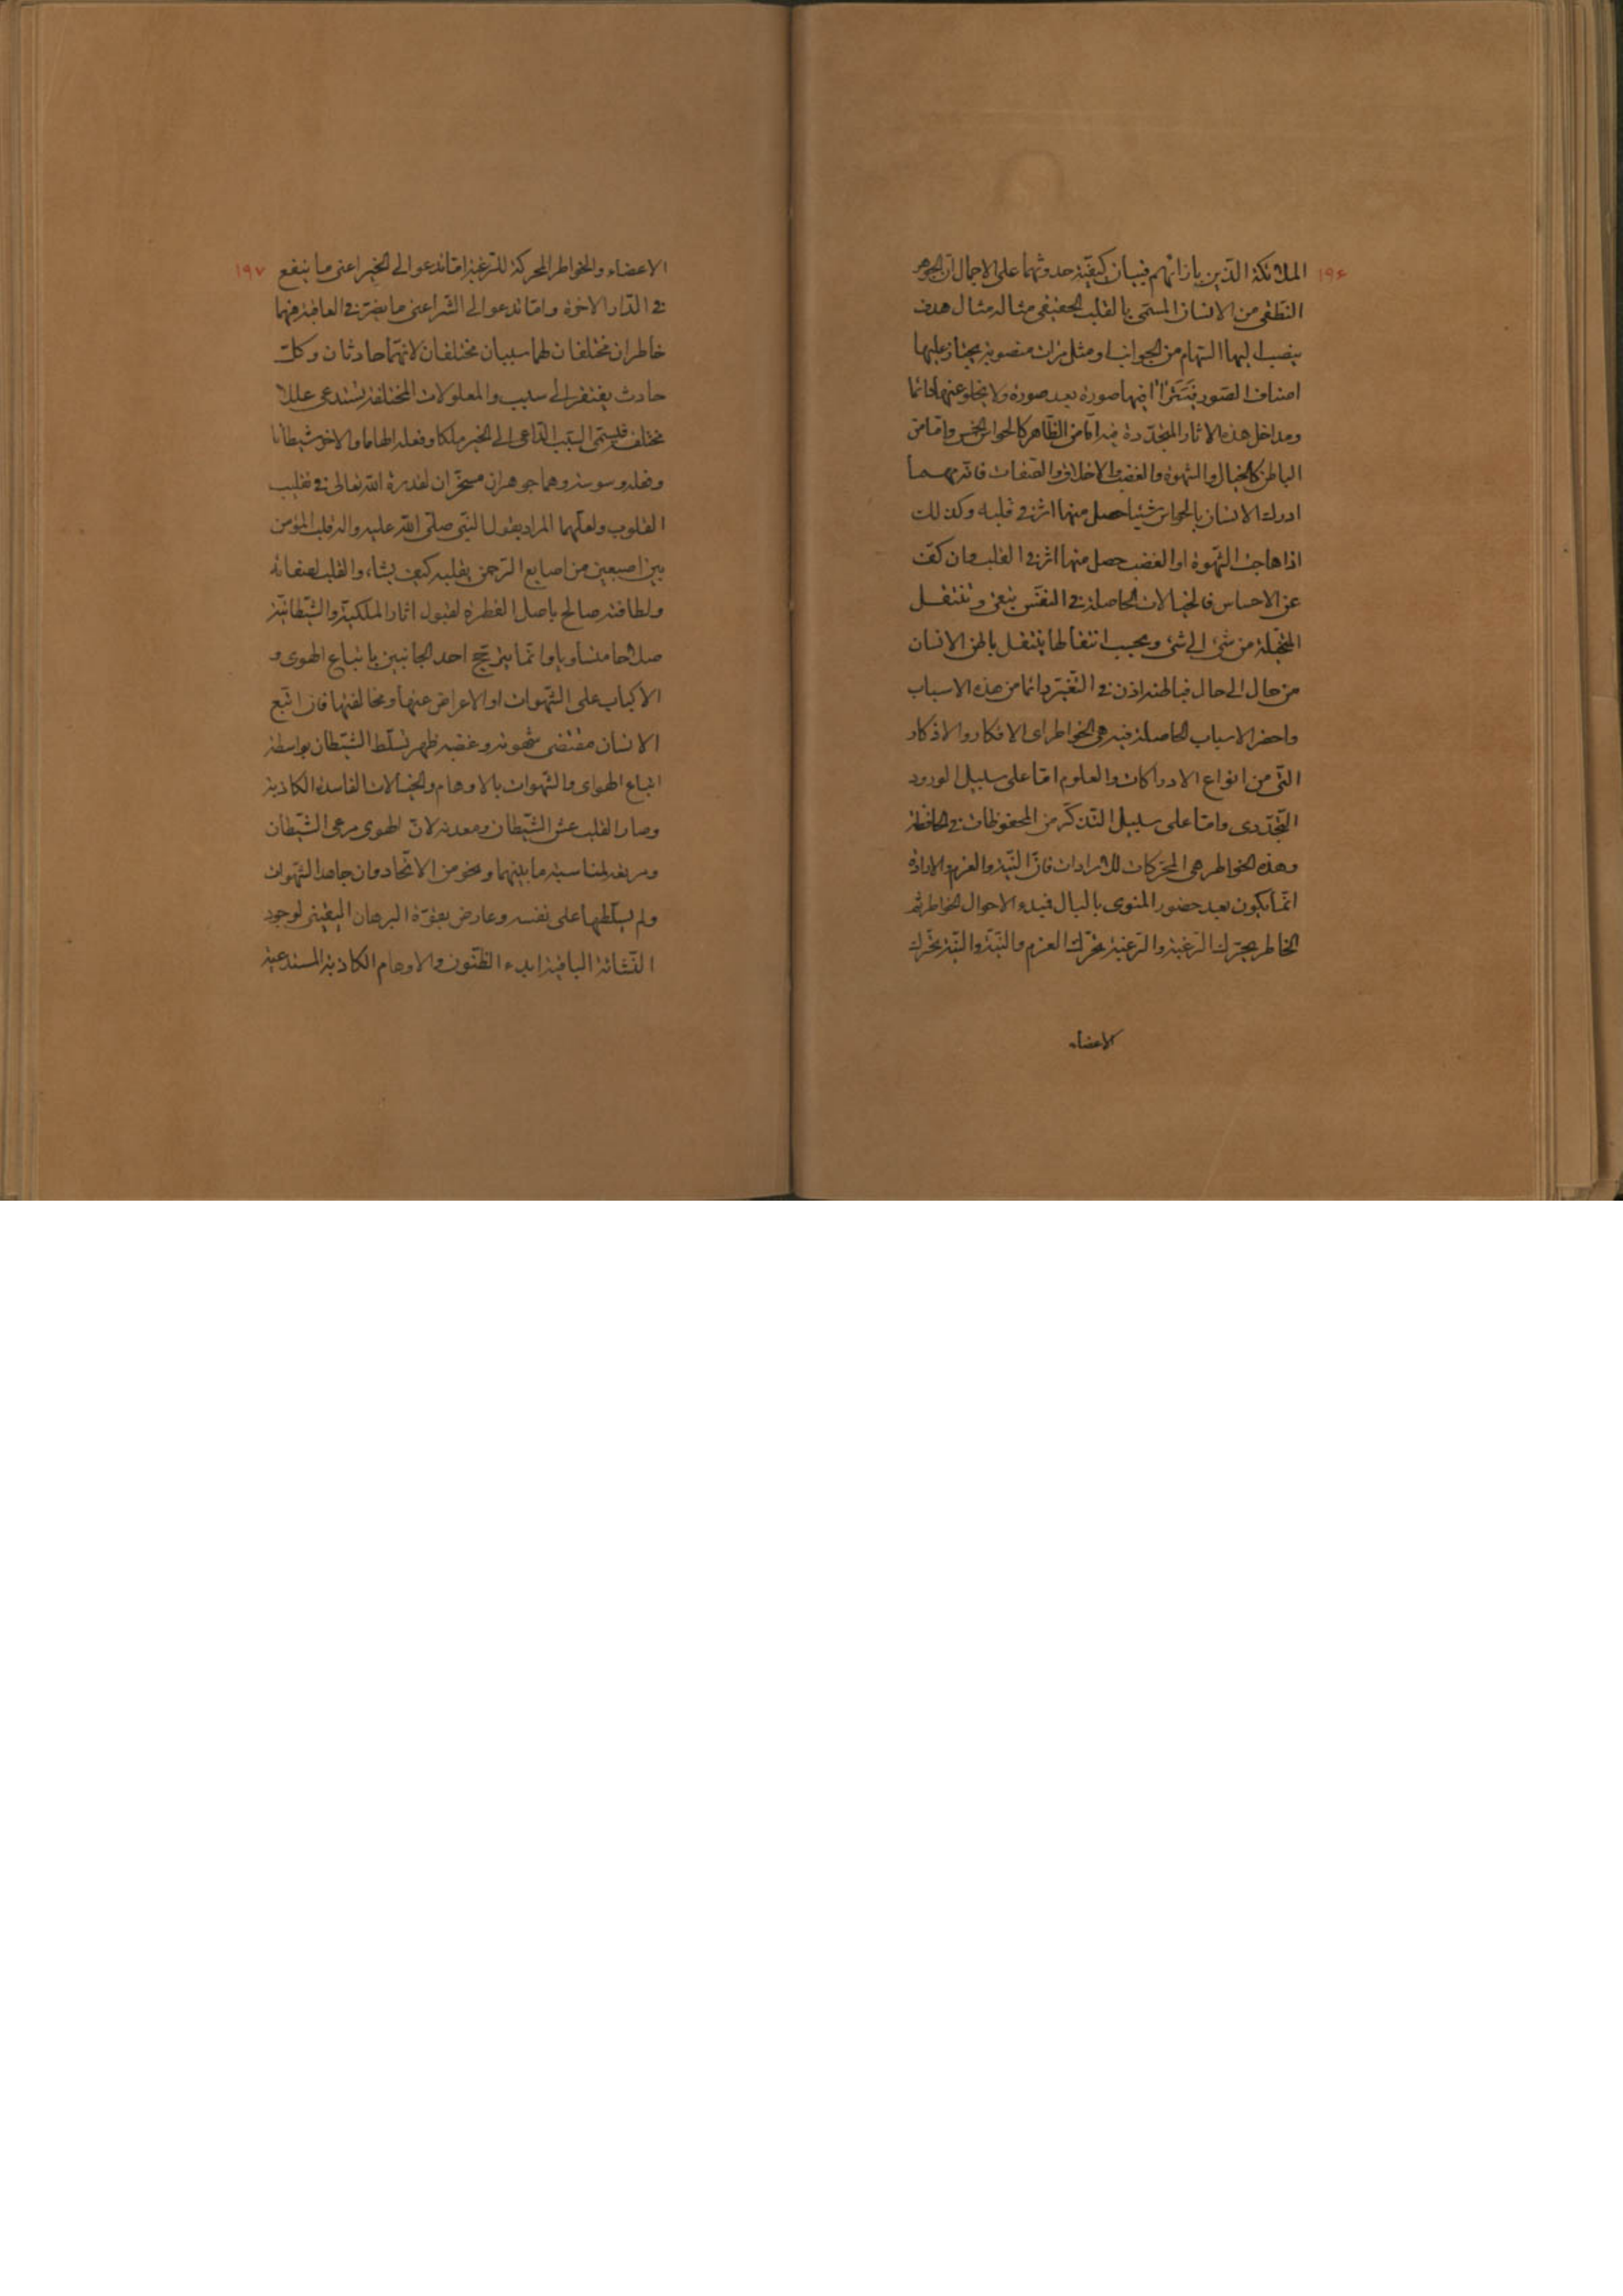 ۱۹۶
الملائكة الذين بازائهم فبيان كيفية حدوثهما على الاجمال ان الجوهر
النطقى من الانسان المسمى بالقلب الحقيقى مثاله مثال هدف
ينصب اليها السهام من الجوانب او مثل مرات منصوبة يجتاز عليها
اصناف الصور فتتراا فيها صورة بعد صورة ولا يخلو عنها دائما
ومداخل هذه الاثار المتجددة فيه امّا من الظاهر كالحواس الخمس وامّا من
الباطن كالخيال والشهوة والغضب والاخلاق والصفات فانه مهما
ادرك الانسان بالحواس شيئا حصل منها اثر فى قلبه وكذلك
اذا هاجت الشهوة او الغضب حصل منها اثر فى القلب وان كفّ
عن الاحساس فالخيالات الحاصلة فى النفس تبقى وتنتقل
المتخيلة من شئ الى شئ وبحسب انتقالها ينتقل باطن الانسان
من حال الى حال فباطنه اذن فى التغيّر دائما من هذه الاسباب
واحضر الاسباب الحاصلة فيه هى الخواطر اى الافكار والاذكار
التى من انواع الادراكات والعلوم امّا على سبيل الورود
التجدّدى وامّا على سبيل التذكّر من المحفوظات فى الحافظة
وهذه الخواطر هى المحرّكات للارادات فانّ النيّة والعزم والارادة
انّما يكون بعد حضور المنوى بالبال فمبدء الاحوال الخواطر ثم
الخاطر يحرّك الرغبة والرغبة تحرّك العزم والنيّة والنيّة تحرّك
الاعضاء
۱۹۷
الاعضاء والخواطر المحركة للرغبة امّا تدعو الى الخير اعنى ما ينفع
فى الدّار الاخرة وامّا تدعو الى الشر اعنى ما يضرّ فى العاقبة فهما
خاطران مختلفان لهما سببان مختلفان لانهما حادثان وكلّ
حادث يفتقر الى سبب والمعلولات المختلفة تستدعى عللا
مختلفة فليسمى السّبب الدّاعى الى الخير ملكا وفعله الهاما والاخر شيطانا
وفعله وسوسة وهما جوهران مسخّران لقدرة اللّه تعالى فى تقليب
القلوب ولعلّهما المراد بقول النبى صلّى اللّه عليه واله قلب المؤمن
بين اصبعين من اصابع الرّحمن يقلبه كيف يشاء والقلب لصفائه
ولطافته صالح باصل الفطرة لقبول اثار الملكيّة والشّيطانيّة
صلاحا متساويا وانّما يترجّح احد الجانبين باتباع الهوى و
الاكباب على الشّهوات او الاعراض عنها ومخالفتها فان اتبع
الانسان مقتضى شهوته وغضبه ظهر تسلّط الشّيطان بواسطة
اتباع الهواى والشّهوات بالاوهام والخيالات الفاسدة الكاذبة
وصار القلب عشّ الشّيطان ومعدنه لانّ الهوى مرعى الشّيطان
ومرتعه لمناسبة ما بينهما ونحو من الاتّحاد وان جاهد الشّهوات
ولم يسلّطها على نفسه وعارض بقوّة البرهان اليقينى لوجود
النّشائة الباقية ابدء الظّنون والاوهام الكاذبة المستدعية